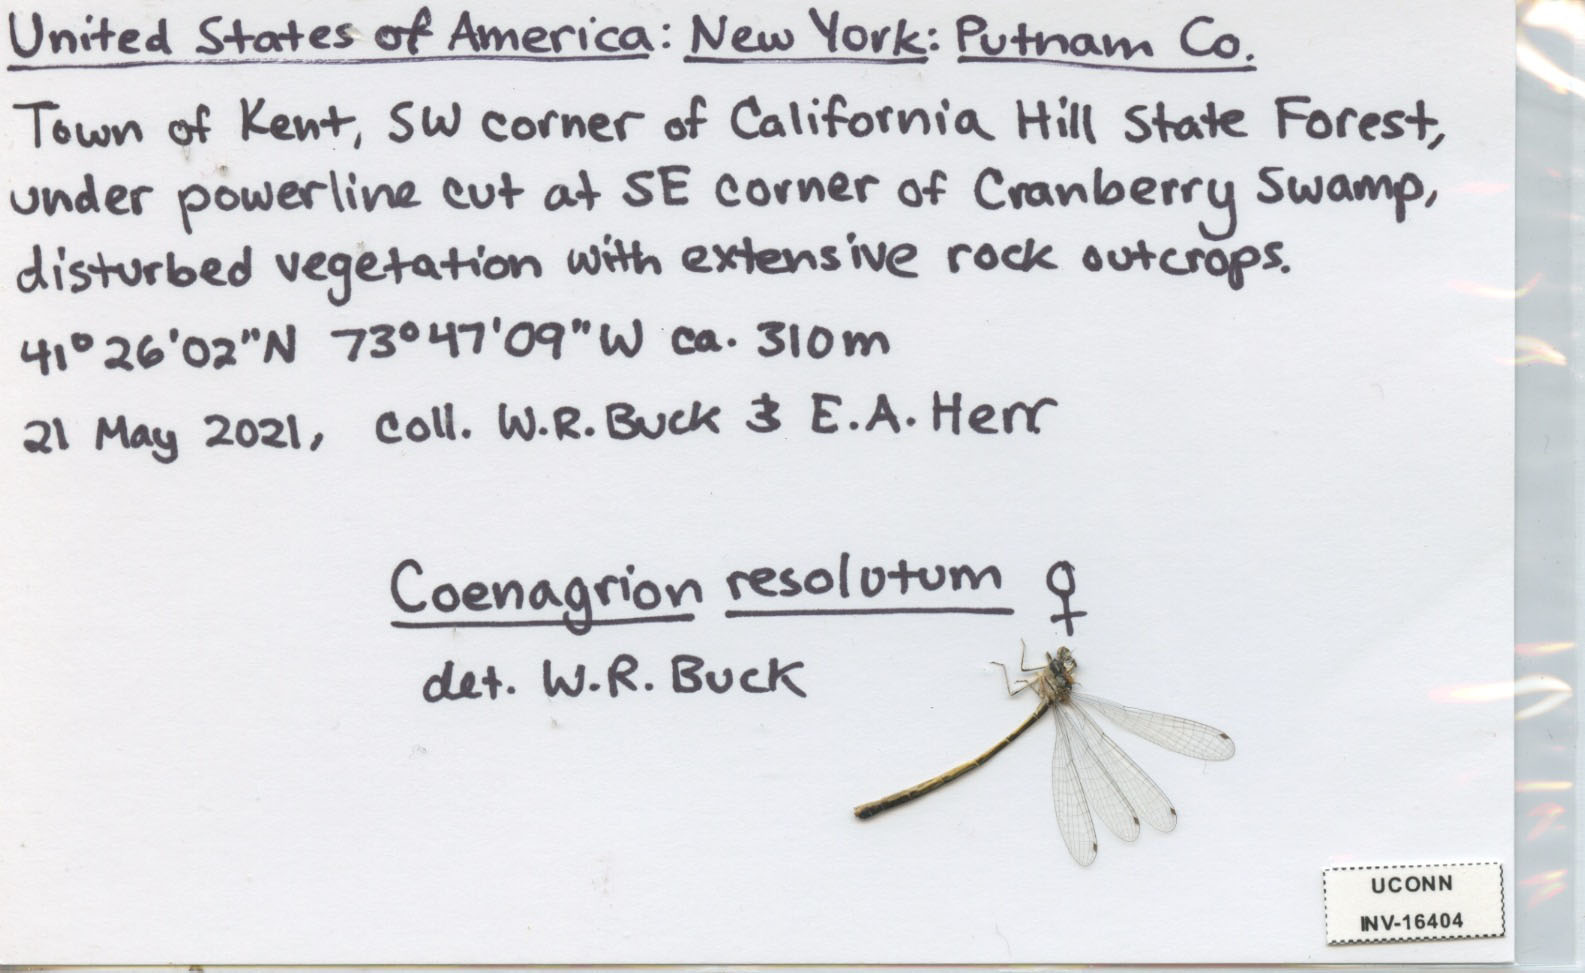 United States of America: New York: Putnam Co.
Town of Kent, SW corner of California Hill State Forest,
under powerline cut at SE corner of Cranberry Swamp,
disturbed vegetation with extensive rock outcrops.
41°26'02"N 73°47'09"W ca. 310m
21 May 2021, coll. W.R. Buck & E.A. Herr
Coenagrion resolutum ♀
det. W.R. Buck
UCONN
INV-16404